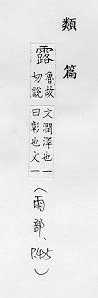 類篇
露魯故切說文潤澤也一曰彰也文一
(雨部、P.425)